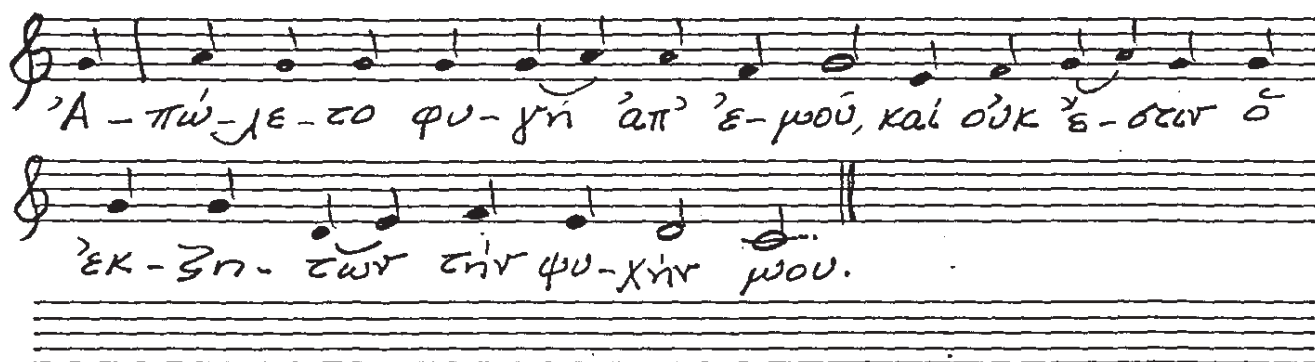 Ἀ-πώ-λε-το φυ-γή ἀπ' ἐ-μοῦ, καί οὐκ ἔ-στιν ὁ
ἐκ-ζη-τῶν τήν ψυ-χήν μου.